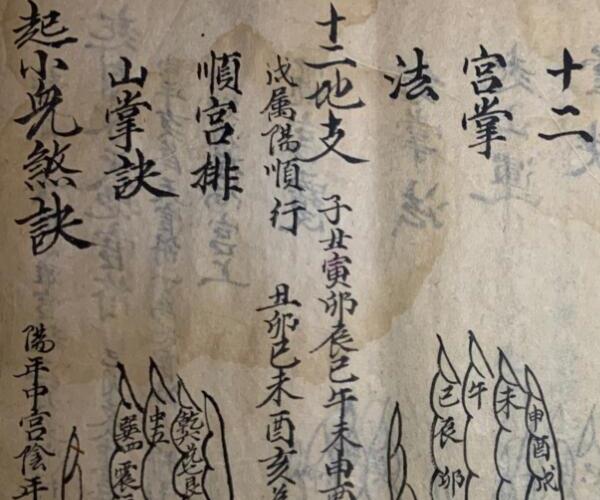 十二
宮掌
法
申酉戌
未
午
巳辰卯
十二地支 子丑寅卯辰巳午未申酉
戌属陽順行 丑卯巳未酉亥
順宮排
山掌訣
乾
艮
中五
巽
震
起小兒煞訣 陽年中宮陰年